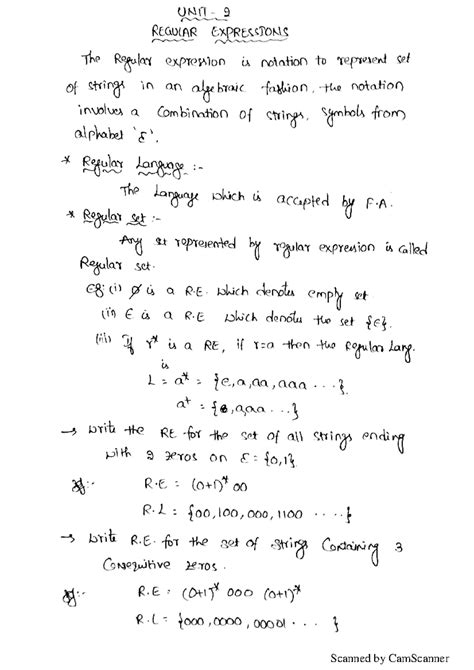 UNIT - 2
REGULAR EXPRESSIONS
The Regular expression is notation to represent set
of strings in an algebraic fashion, the notation
involves a Combination of strings, Symbols from
alphabet 'Σ'.
* Regular Language :-
The Language which is accepted by F.A.
* Regular set :-
Any set represented by regular expression is Called
Regular set.
eg: (i) ø is a R.E. which denotes empty set
(ii) ϵ is a R.E which denotes the set {ϵ}.
(iii) If r* is a RE, if r=a then the Regular Lang.
is
L = a* = {ϵ, a, aa, aaa ....}.
a⁺ = {a, aa ...}
→ Write the RE for the set of all strings ending
with 2 zeros on Σ = {0,1}.
R.E = (0+1)* 00
R.L = {00, 100, 000, 1100 .....}
→ Write R.E. for the set of strings Containing 3
Consequitive zeros.
R.E = (0+1)* 000 (0+1)*
R.L = {000, 0000, 00001 ... }
Scanned by CamScanner